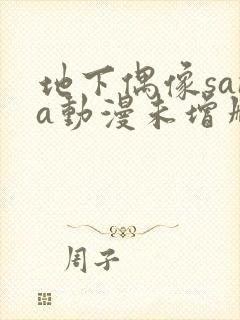 地下偶像sa
a動漫未增
周子